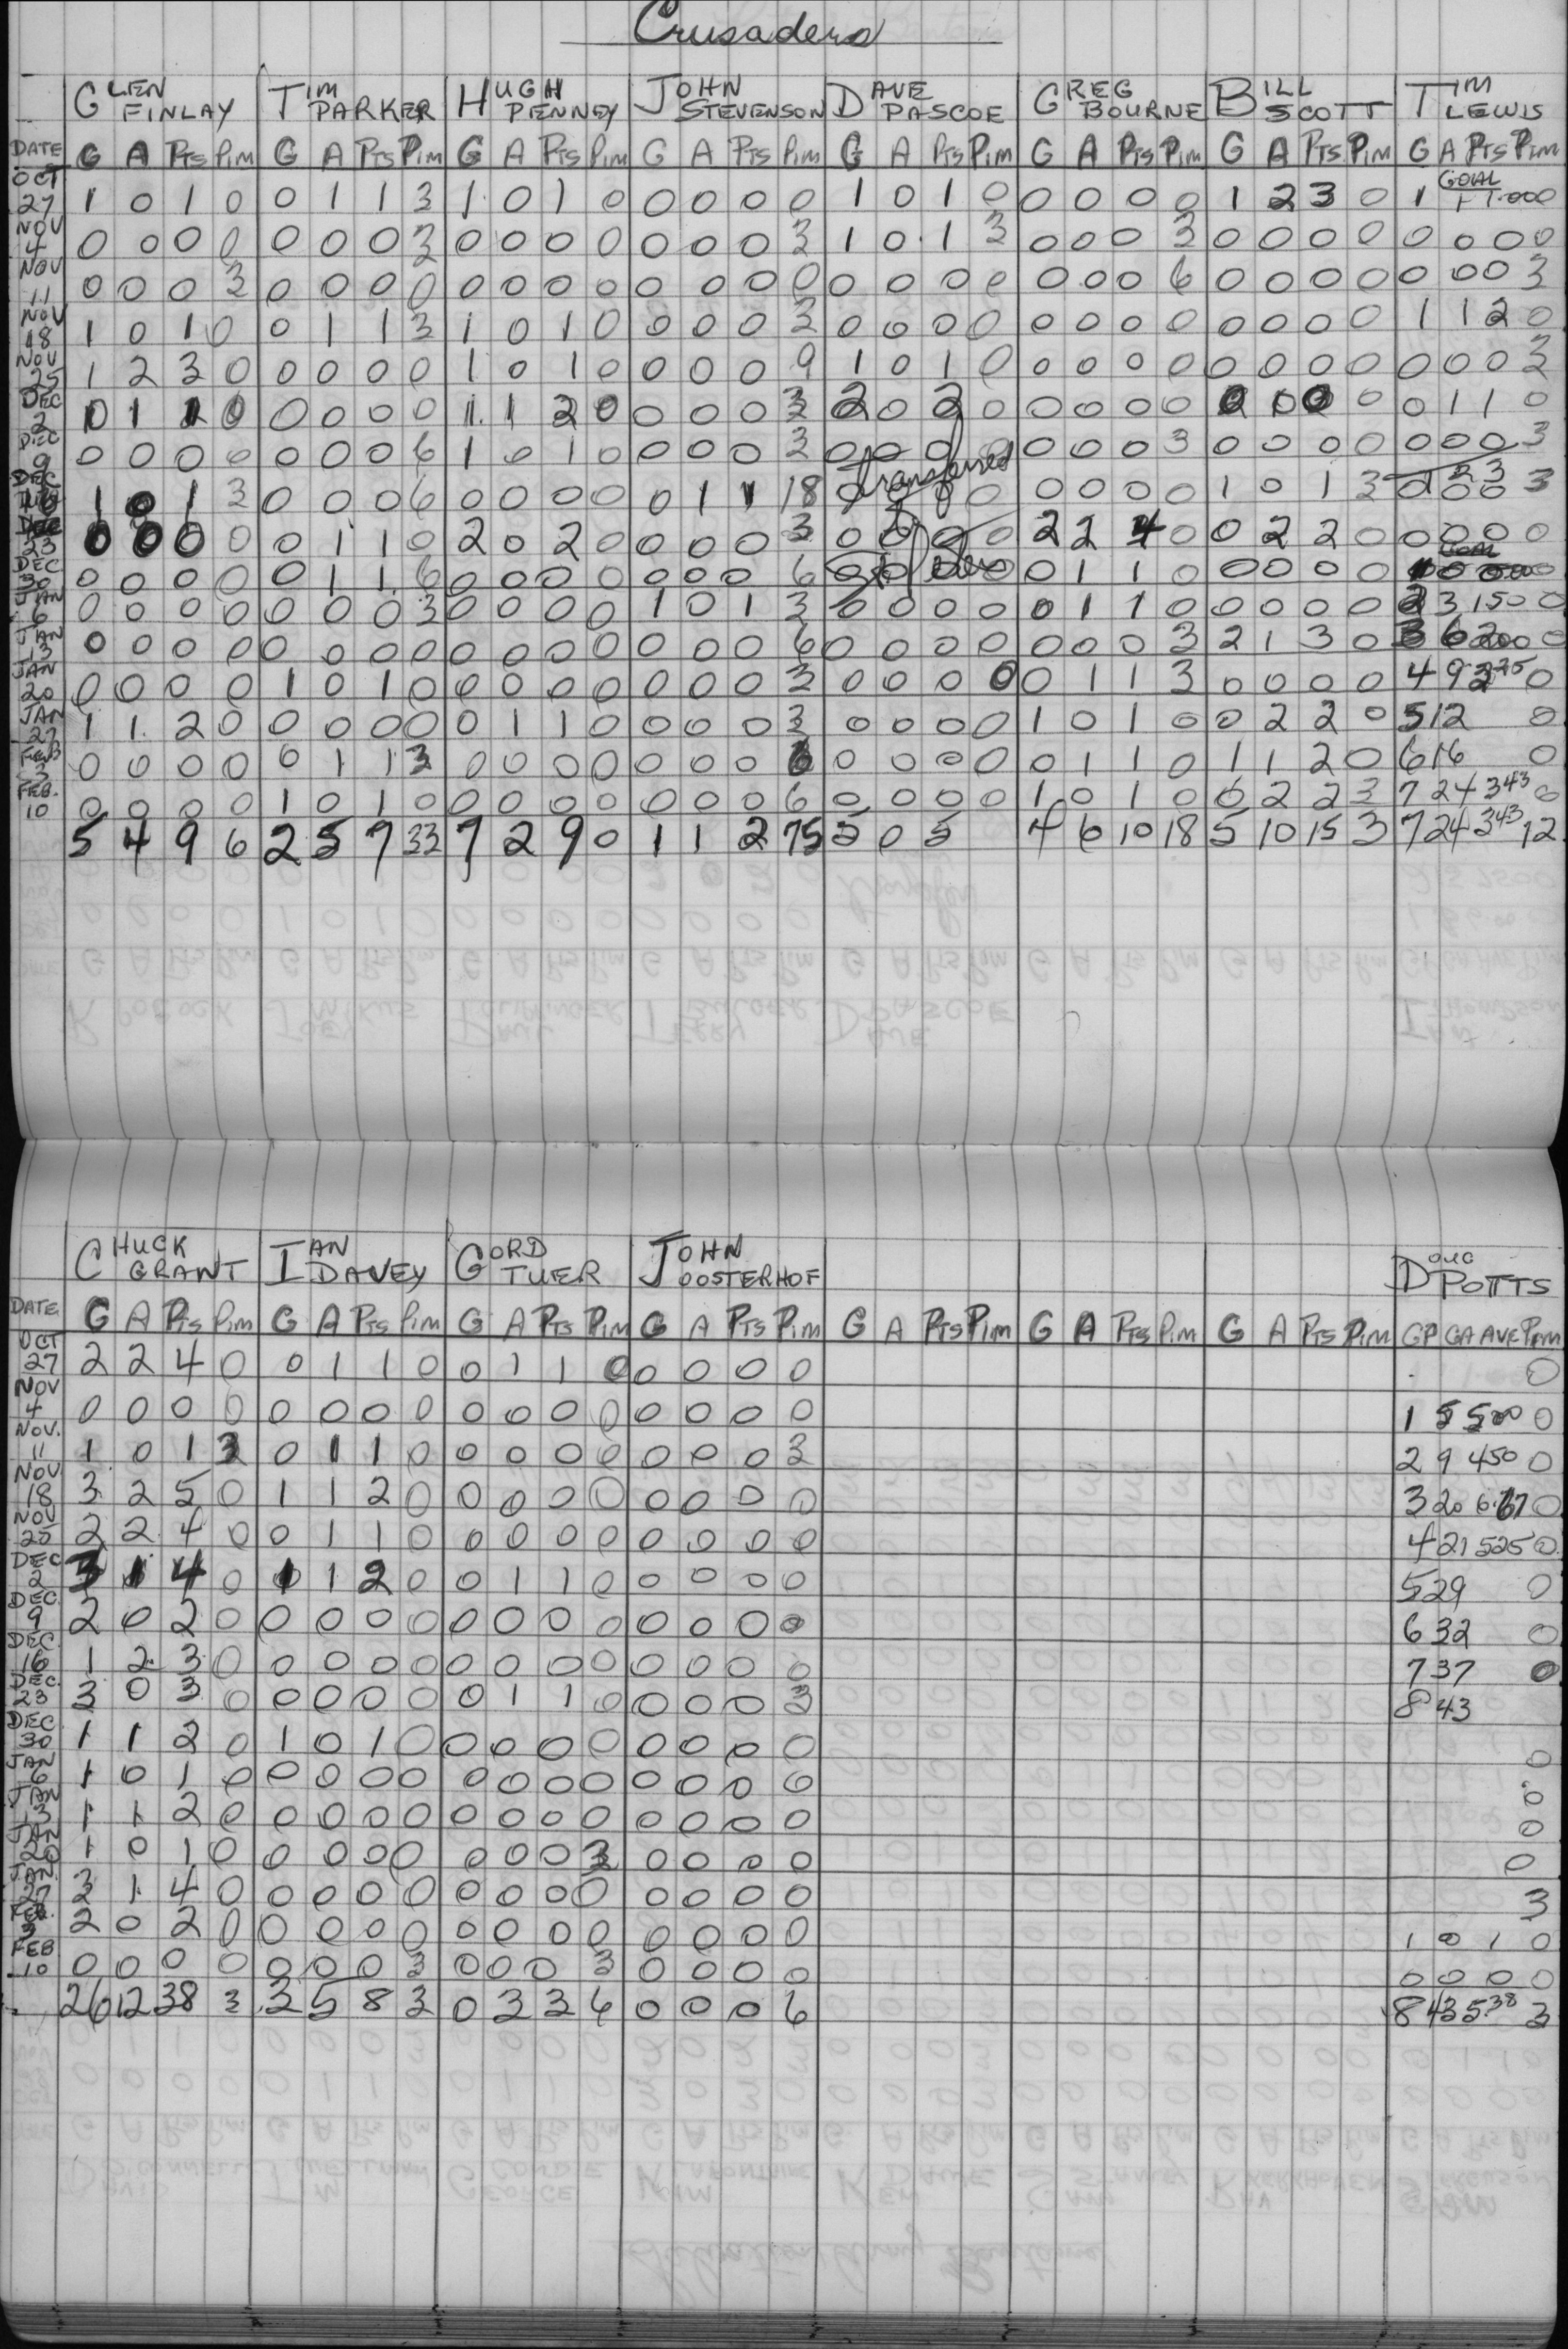 Crusaders
GLEN FINLAY TIM PARKER HUGH PENNEY JOHN STEVENSON DAVE PASCOE GREG BOURNE BILL SCOTT TIM LEWIS
DATE G A PTS PIM G A PTS PIM G A PTS PIM G A PTS PIM G A PTS PIM G A PTS PIM G A PTS PIM G A PTS PIM
OCT 27 1 0 1 0 0 1 1 3 1 0 1 0 0 0 0 0 1 0 1 0 0 0 0 0 1 2 3 0 1 GOAL 1 1.00 0
NOV 4 0 0 0 0 0 0 0 3 0 0 0 0 0 0 0 3 1 0 1 3 0 0 0 3 0 0 0 0 0 0 0 0
NOV 11 0 0 0 3 0 0 0 0 0 0 0 0 0 0 0 0 0 0 0 0 0 0 0 6 0 0 0 0 0 0 0 3
NOV 18 1 0 1 0 0 1 1 3 1 0 1 0 0 0 0 3 0 0 0 0 0 0 0 0 0 0 0 0 1 1 2 0
NOV 25 1 2 3 0 0 0 0 0 1 0 1 0 0 0 0 9 1 0 1 0 0 0 0 0 0 0 0 0 0 0 0 3
DEC 2 0 1 1 0 0 0 0 0 1 1 2 0 0 0 0 3 2 0 2 0 0 0 0 0 0 0 0 0 1 1 0
DEC 9 0 0 0 0 0 0 0 6 1 0 1 0 0 0 0 3 0 0 0 0 0 0 0 3 0 0 0 0 0 0 0 3
DEC 16 1 0 1 3 0 0 0 6 0 0 0 0 0 1 1 18 0 0 0 0 transferred 0 0 0 0 1 0 1 3 0 0 3
DEC 23 0 0 0 0 0 1 1 0 2 0 2 0 0 0 0 3 0 0 0 0 2 2 4 0 0 2 2 0 0 0 0 0
DEC 30 0 0 0 0 0 1 1 6 0 0 0 0 0 0 0 6 0 0 0 1 1 0 0 0 0 0
JAN 6 0 0 0 0 0 0 0 3 0 0 0 0 1 0 1 3 0 0 0 0 0 1 1 0 0 0 0 0 2 3 150 0
JAN 13 0 0 0 0 0 0 0 0 0 0 0 0 0 0 0 6 0 0 0 0 0 0 0 3 2 1 3 0 3 6 200 0
JAN 20 0 0 0 0 1 0 1 0 0 0 0 0 0 0 0 3 0 0 0 0 0 1 1 3 0 0 0 0 4 9 225 0
JAN 27 1 1 2 0 0 0 0 0 0 1 1 0 0 0 0 3 0 0 0 0 1 0 1 0 0 2 2 0 5 12 0
FEB 3 0 0 0 0 0 1 1 3 0 0 0 0 0 0 0 6 0 0 0 0 0 1 1 0 1 1 2 0 6 16 0
FEB. 10 0 0 0 0 1 0 1 0 0 0 0 0 0 0 0 6 0 0 0 0 1 0 1 0 0 2 2 3 7 24 343 0
5 4 9 6 2 5 7 33 7 2 9 0 1 1 2 75 5 0 5 4 6 10 18 5 10 15 3 7 24 343 12
CHUCK GRANT IAN DAVEY GORD TUER JOHN OOSTERHOF DOUG POTTS
DATE G A PTS PIM G A PTS PIM G A PTS PIM G A PTS PIM G A PTS PIM G A PTS PIM G A PTS PIM GP GA AVE PIM
OCT 27 2 2 4 0 0 1 1 0 0 1 1 0 0 0 0 0 0
NOV 4 0 0 0 0 0 0 0 0 0 0 0 0 0 0 0 0 1 5 500 0
NOV. 11 1 0 1 3 0 1 1 0 0 0 0 0 0 0 0 3 2 9 450 0
NOV 18 3 2 5 0 1 1 2 0 0 0 0 0 0 0 0 0 3 20 6.67 0
NOV 25 2 2 4 0 0 1 1 0 0 0 0 0 0 0 0 0 4 21 525 0
DEC 2 3 1 4 0 1 1 2 0 0 1 1 0 0 0 0 0 5 29 0
DEC. 9 2 0 2 0 0 0 0 0 0 0 0 0 0 0 0 0 6 32 0
DEC. 16 1 2 3 0 0 0 0 0 0 0 0 0 0 0 0 0 7 37 0
DEC. 23 3 0 3 0 0 0 0 0 0 1 1 0 0 0 0 3 8 43
DEC 30 1 1 2 0 1 0 1 0 0 0 0 0 0 0 0 0 0
JAN 6 1 0 1 0 0 0 0 0 0 0 0 0 0 0 0 0 0
JAN 13 1 1 2 0 0 0 0 0 0 0 0 0 0 0 0 0 0
JAN 20 1 0 1 0 0 0 0 0 0 0 0 3 0 0 0 0 0
JAN. 27 3 1 4 0 0 0 0 0 0 0 0 0 0 0 0 0 3
FEB. 3 2 0 2 0 0 0 0 0 0 0 0 0 0 0 0 0 1 0 1 0
FEB 10 0 0 0 0 0 0 0 3 0 0 0 3 0 0 0 0 0 0 0 0
26 12 38 3 3 5 8 3 0 3 3 6 0 0 0 6 8 43 538 3